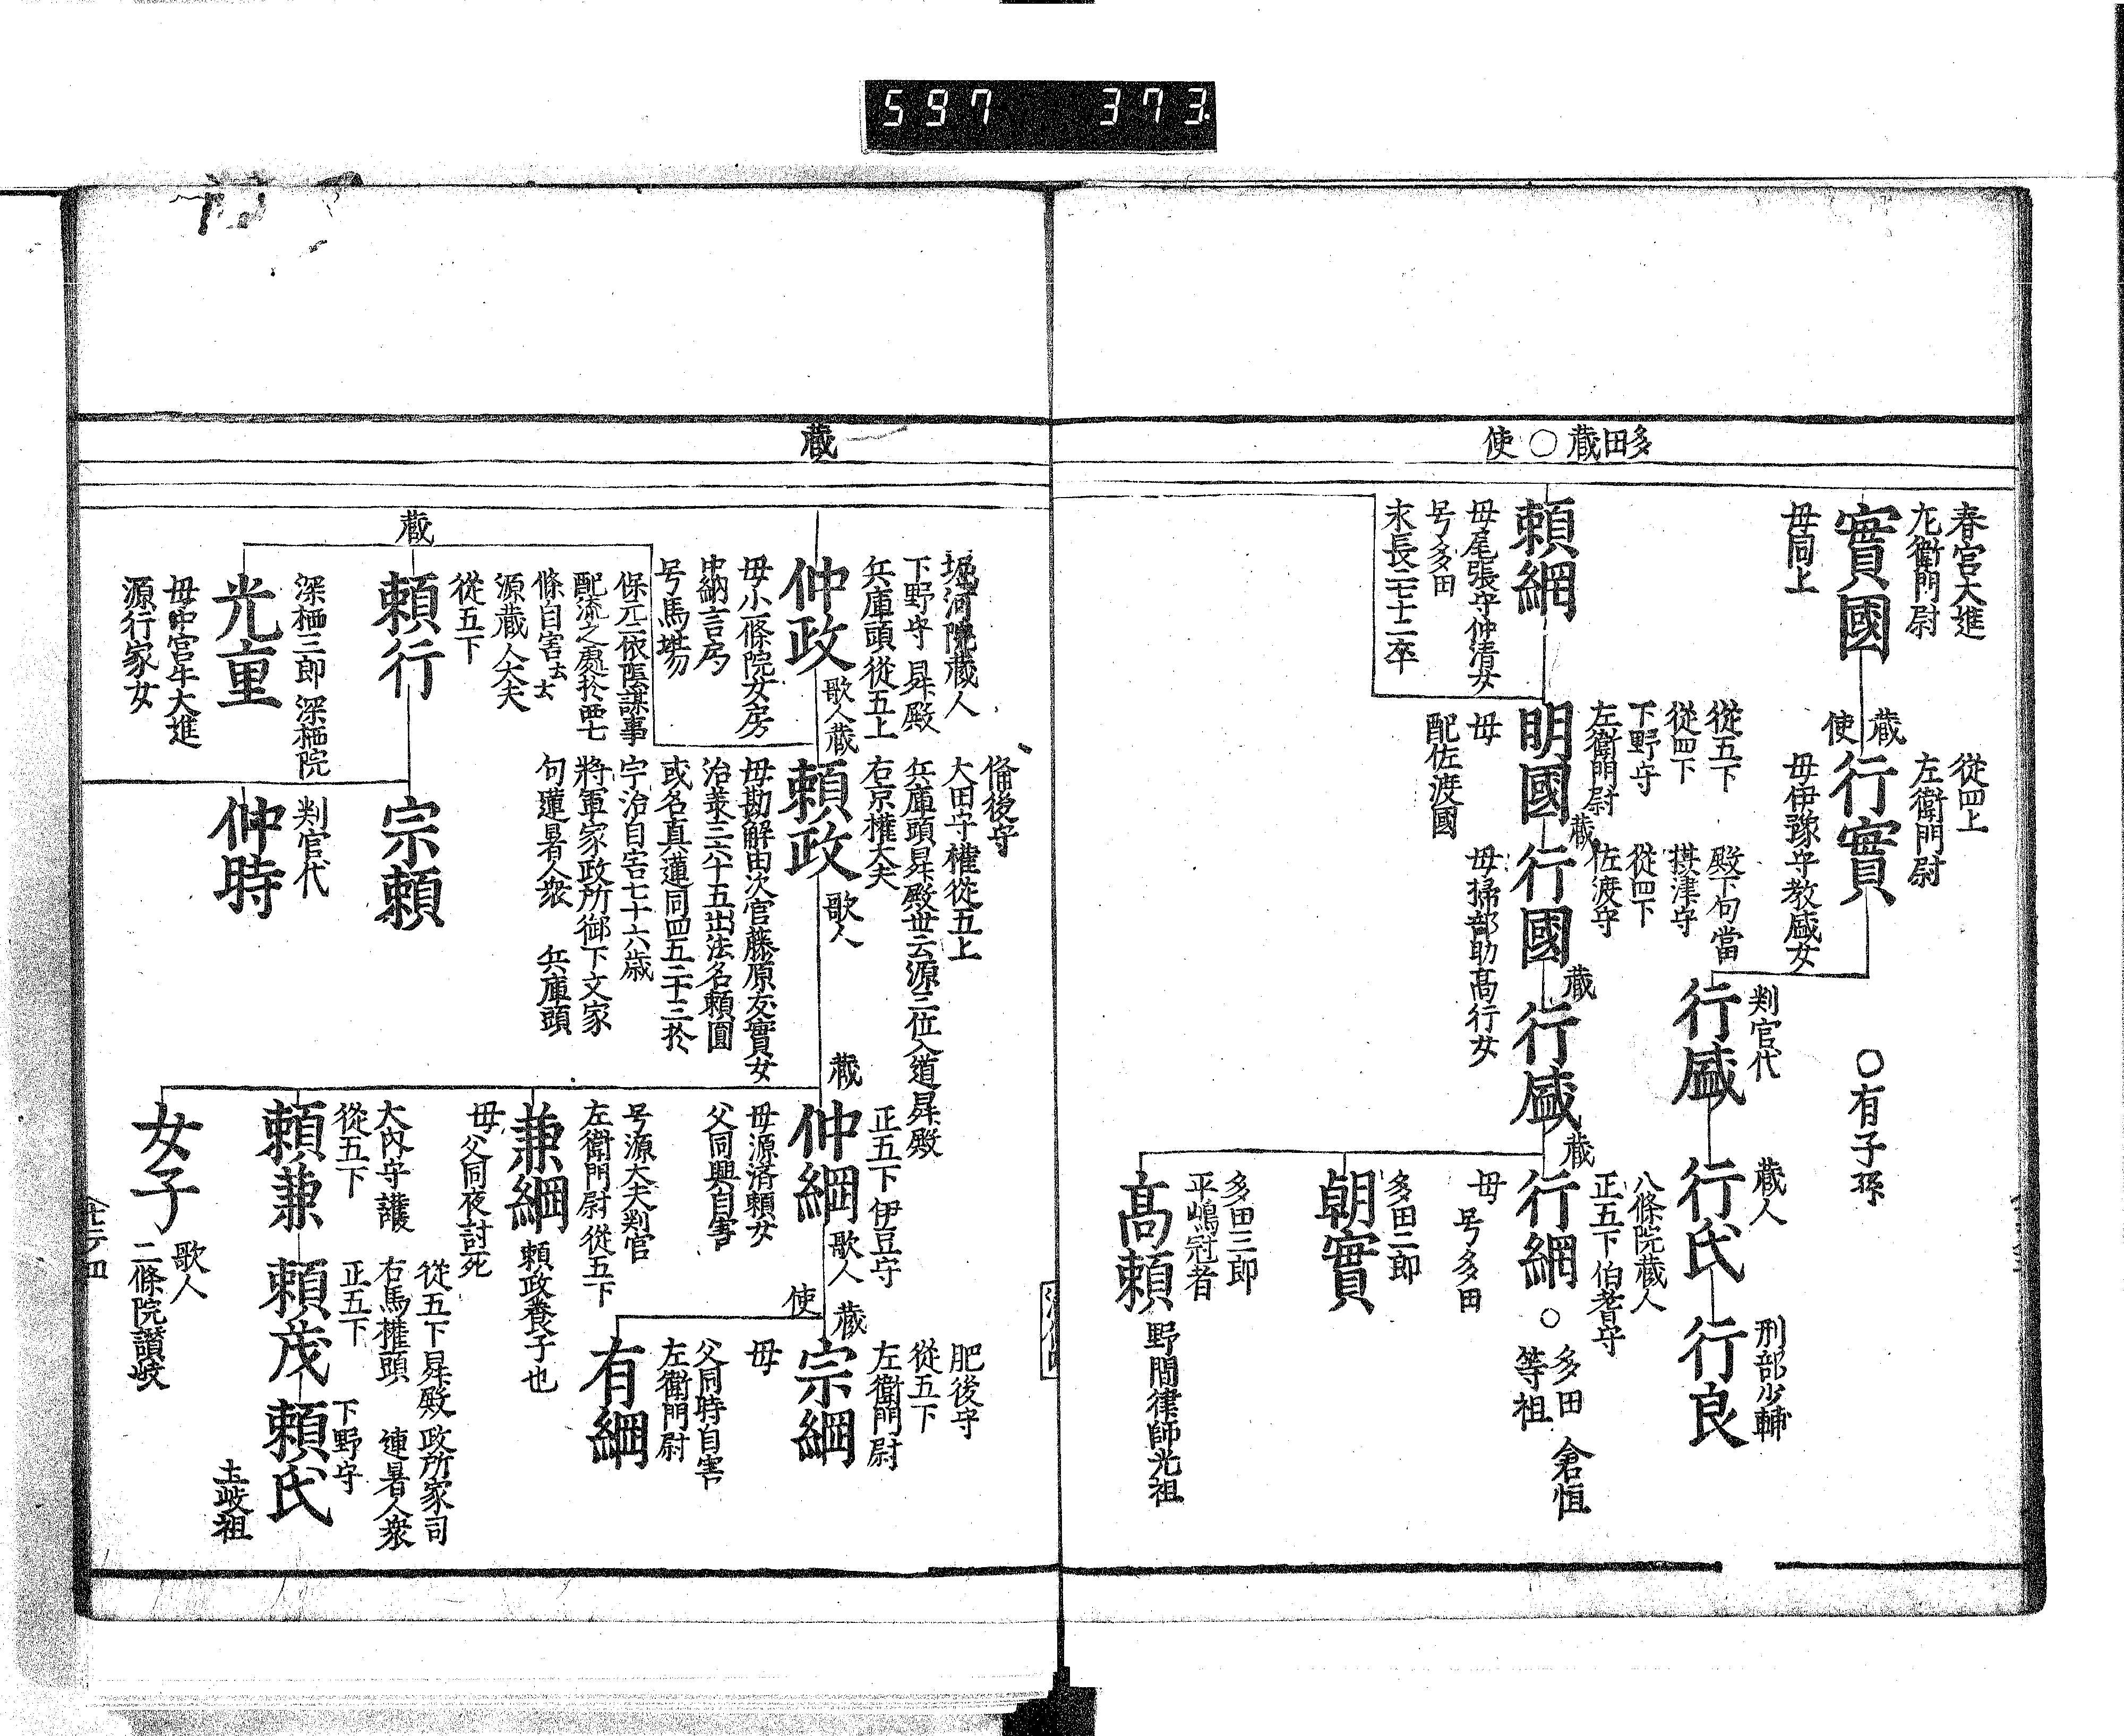 597 373
多田蔵○使
春宮大進
左衛門尉
實國
母同上
從四上
左衛門尉
蔵
使
行實
母伊豫守教盛女
○有子孫
判官代
行盛
蔵人
行氏
刑部少輔
行良
頼綱
母尾張守仲清女
号多田
永長二七十二卒
從五下
從四下
下野守
左衛門尉
明國
母
配佐渡國
殿下勾當
摂津守
從四下
佐渡守
蔵
行國
母掃部助髙行女
蔵
行盛
八條院蔵人
正五下伯耆守
蔵
行綱
母
号多田
○多田 倉恒
等祖
多田二郎
朝實
多田三郎
平嶋冠者
髙頼
野間律師光祖
蔵
堀河院蔵人
下野守 昇殿
兵庫頭從五上
仲政
歌人
母小一條院女房
中納言局
号馬場
備後守
大田守權從五上
兵庫頭昇殿世云源三位入道昇殿
右京權大夫
蔵
頼政
歌人
母勘解由次官藤原友實女
治業三六十五出法名頼圓
或名真蓮同四五二十三於
宇治自害七十六歳
將軍家政所御下文家
句連署人衆 兵庫頭
正五下 伊豆守
蔵
仲綱
歌人
母源済頼女
父同興自害
肥後守
從五下
左衛門尉
蔵
宗綱
母
父同時自害
左衛門尉
使
有綱
号源大夫判官
左衛門尉 從五下
兼綱
頼政養子也
母
父同夜討死
大内守護
從五下
頼兼
從五下昇殿 政所家司
右馬權頭 連署人衆
正五下
頼茂
下野守
頼氏
土岐祖
女子
歌人
二條院讃岐
保元二依隂謀事
配流之處於西七
條自害去々
源蔵人大夫
從五下
蔵
頼行
宗頼
深栖三郎 深栖院
光重
母中宮牛大進
源行家女
判官代
仲時